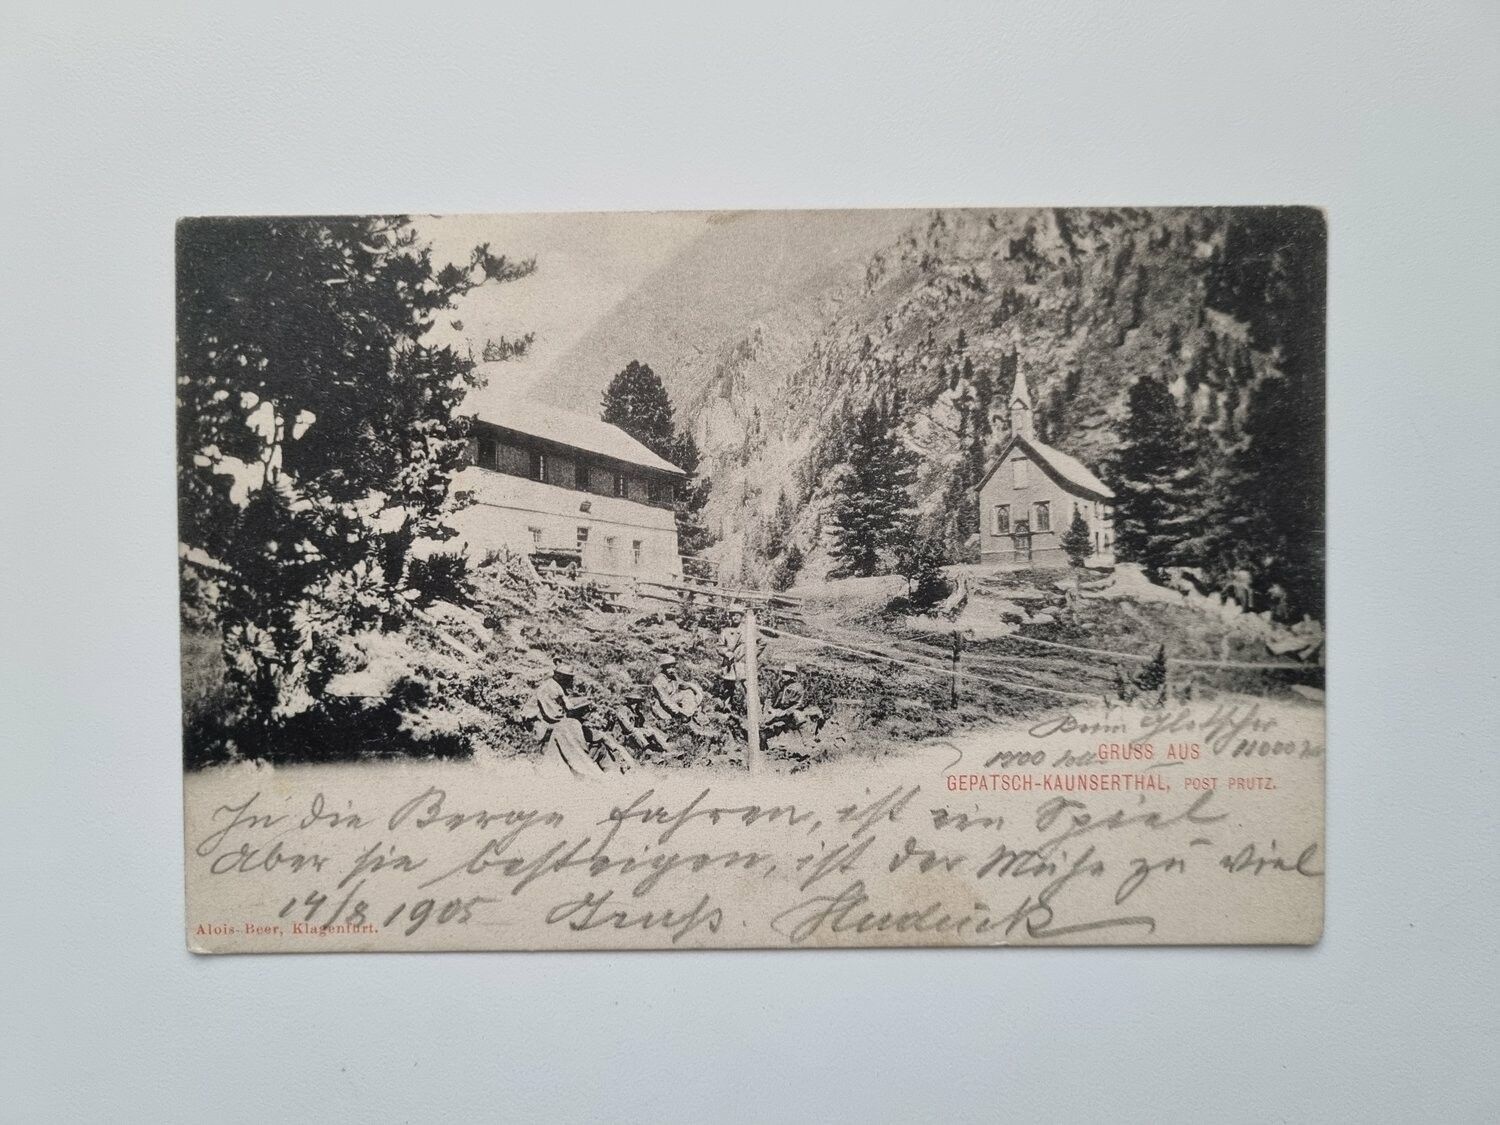 Beim Gletscher
1900
GRUSS AUS
GEPATSCH-KAUNSERTHAL, POST PRUTZ.
In die Berge fahren, ist ein Spiel
Aber sie besteigen, ist der Mühe zu viel
14/8 1905 Gruß.
Alois Beer, Klagenfurt.